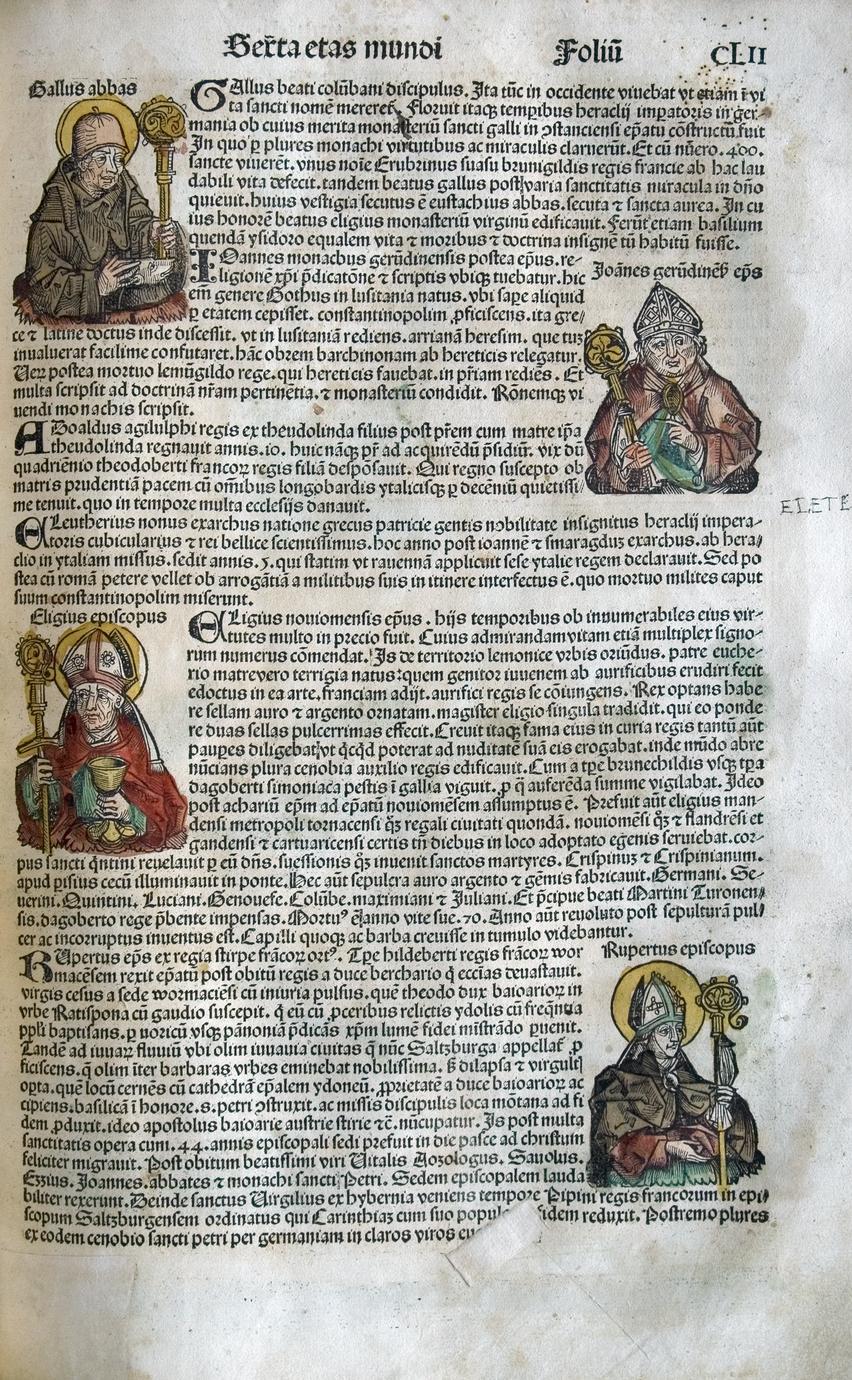 Sexta etas mundi Foliũ CLII
Gallus abbas
GAllus beati colũbani discipulus. Ita tũc in occidente viuebat vt etiam ĩ vi
ta sancti nomẽ mereret᷑. Floruit itaq̃ temp̃ibus heraclij imp̃atoris in ger⸗
mania ob cuius merita monasteriũ sancti galli in ꝯstanciensi ep̃atu cõstructũ fuit
In quo p̱ plures monachi virtutibus ac miraculis claruerũt. Et cũ nũero .400.
sancte viuerẽt. vnus noĩe Erubrinus suasu brunigildis regis francie ab hac lau
dabili vita defecit. tandem beatus gallus post varia sanctitatis miracula in dño
quieuit. huius vestigia secutus ẽ eustachius abbas. secuta ⁊ sancta aurea. In cu
ius honorẽ beatus eligius monasteriũ virginũ edificauit. Ferũt etiam basilium
quendã ysidoro equalem vita ⁊ moribus ⁊ doctrina insignẽ tũ habitũ fuisse.
Joãnes gerũdineñ ep̃s
IOannes monachus gerũdinensis postea ep̃us. re⸗
ligionẽ xp̃i p̃dicatõne ⁊ scriptis vbiq̃ tuebatur. hic
em̃ genere Gothus in lusitania natus. vbi sap̃e aliquid
p̱ etatem cepisset. constantinopolim ꝓficiscens. ita gre⸗
ce ⁊ latine doctus inde discessit. vt in lusitaniã rediens. arrianã heresim. que tuꝫ
inualuerat facilime confutaret. hãc obrem barchinonam ab hereticis relegatur.
Uerꝝ postea mortuo lemũgildo rege. qui hereticis fauebat. in pr̃iam redijt. Et
multa scripsit ad doctrinã nr̃am pertinẽtia. ⁊ monasteriũ condidit. Rõnemq̃ vi
uendi monachis scripsit.
ADoaldus agilulphi regis ex theudolinda filius post pr̃em cum matre ip̃a
theudolinda regnauit annis .10. huic nãq̃ pr̃ ad acquirẽdũ p̃sidiũ. vix dũ
quadriẽnio theodoberti francoꝝ regis filiã despõsauit. Qui regno suscepto ob
matris prudentiã pacem cũ om̃ibus longobardis ytalicisq̃ p̱ decẽniũ quietissi⸗
me tenuit. quo in tempore multa ecclesijs donauit.
ELETE
ELeutherius nonus exarchus natione grecus patricie gentis nobilitate insignitus heraclij impera⸗
toris cubicularius ⁊ rei bellice scientissimus. hoc anno post ioannẽ ⁊ smaragduꝫ exarchus. ab hera⸗
clio in ytaliam missus. sedit annis .5. qui statim vt rauennã applicuit sese ytalie regem declarauit. Sed po
stea cũ romã petere vellet ob arrogãtiã a militibus suis in itinere interfectus ẽ. quo mortuo milites caput
suum constantinopolim miserunt.
Eligius episcopus
ELigius nouiomensis ep̃us . hijs temporibus ob innumerabiles eius vir⸗
tutes multo in precio fuit. Cuius admirandam vitam etiã multiplex signo⸗
rum numerus cõmendat. Is de territorio lemonice vrbis oriũdus. patre euche⸗
rio matre vero terrigia natus: quem genitor iuuenem ab aurificibus erudiri fecit
edoctus in ea arte. franciam adijt. aurifici regis se cõiungens. Rex optans habe
re sellam auro ⁊ argento ornatam. magister eligio singula tradidit. qui eo ponde
re duas sellas pulcerrimas effecit. Creuit itaq̃ fama eius in curia regis tantũ aũt
paup̱es diligebat vt q̃cq̃d poterat ad nuditatẽ suã eis erogabat. inde mũdo abre
nũcians plura cenobia auxilio regis edificauit. Cum a tp̃e brunechildis vsq̃ tp̃a
dagoberti simoniaca pestis ĩ gallia viguit. ꝓ q̃ auferẽda summe vigilabat. Ideo
post achariũ ep̃m ad ep̃atũ nouiomẽsem assumptus ẽ. Prefuit aũt eligius man⸗
densi metropoli tornacensi q̃ꝫ regali ciuitati quondã. nouiomẽsi q̃ꝫ ⁊ flandrẽsi et
gandensi ⁊ cartuaricensi certis tñ diebus in loco adoptato egenis seruiebat. cor⸗
pus sancti q̃ntini reuelauit p̱ eũ dñs. suessionis q̃ꝫ inuenit sanctos martyres. Crispinuꝫ ⁊ Crispinianum.
apud p̱isius cecũ illuminauit in ponte. Hec aũt sepulcra auro argento ⁊ gẽmis fabricauit. Germani. Se⸗
uerini. Quintini. Luciani. Genouefe. Colũbe. maximiani ⁊ Juliani. Et p̃cipue beati Martini Turonen⸗
sis. dagoberto rege p̃bente impensas. Mortuꝰ ẽ anno vite sue .70. Anno aũt reuoluto post sepulturã pul⸗
cer ac incorruptus inuentus est. Capilli quoq̃ ac barba creuisse in tumulo videbantur.
Rupertus episcopus
RUpertus ep̃s ex regia stirpe frãcoꝝ ortꝰ. Tp̃e hildeberti regis frãcoꝝ wor
macẽsem rexit ep̃atũ post obitũ regis a duce berchario q̃ ecc̃ias deuastauit.
virgis cesus a sede wormaciẽsi cũ iniuria pulsus. quẽ theodo dux baioarioꝝ in
vrbe Ratispona cũ gaudio suscepit. q̃ eũ cũ ꝓceribus relictis ydolis cũ freq̃ntia
pp̃li baptisans. p̱ noricũ vsq̃ pãnoniã p̃dicãs xp̃m lumẽ fidei mĩstrãdo p̱uenit.
Tandẽ ad iuuaꝝ fluuiũ vbi olim iuuauia ciuitas q̃ nũc Saltzburga appellat᷑ ꝓ
ficiscens. q̃ olim ĩter barbaras vrbes eminebat nobilissima. s̃ dilapsa ⁊ virgult̃
op̱ta. quẽ locũ cernẽs cũ cathedrã ep̃alem ydoneũ. ꝓprietatẽ a duce baioarioꝝ ac
cipiens. basilicã ĩ honore .s. petri ꝯstruxit. ac missis discipulis loca mõtana ad fi
dem ꝓduxit. ideo apostolus baioarie austrie stirie ⁊c̃. nũcupatur. Is post multa
sanctitatis opera cum .44. annis episcopali sedi prefuit in die pasce ad christum
feliciter migrauit. Post obitum beatissimi viri Uitalis Anzologus. Sauolus.
Ezzius. Joannes. abbates ⁊ monachi sancti Petri. Sedem episcopalem lauda
biliter rexerunt. Deinde sanctus Uirgilius ex hybernia veniens tempore Pipini regis francorum in epi⸗
scopum Saltzburgensem ordinatus qui Carinthiaꝫ cum suo popul fidem reduxit. Postremo plures
ex eodem cenobio sancti petri per germaniam in claros viros